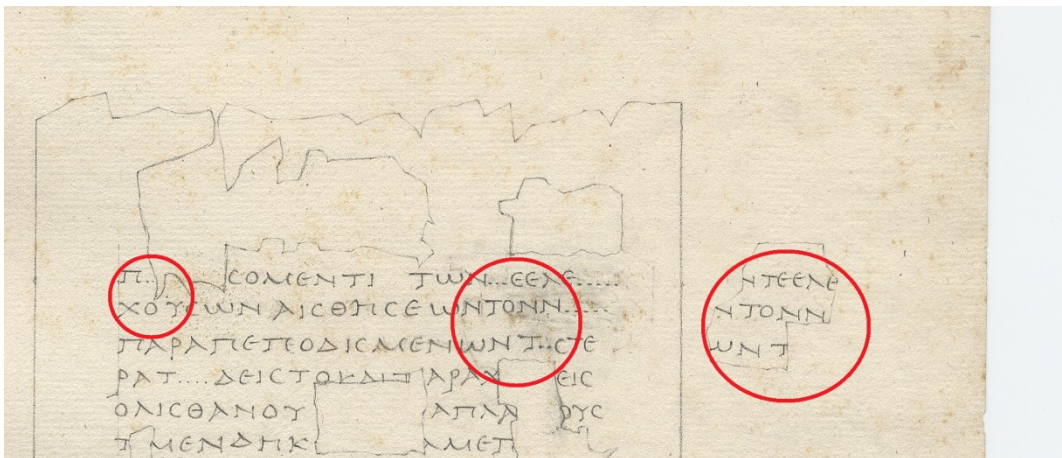 Π.. ϹΟΜΕΝΤΙ ΤΩΝ...ΕΕΛΕ......
ΧΟΥϹΩΝ ΑΙϹΘΗϹΕΩΝΤΟΝΝ......
ΠΑΡΑΠΕΠΟΔΙϹΜΕΝΩΝΤ..ϹΤΕ
ΡΑΤ....ΔΕΙϹΤΟ ΑΡΑΧ ΕΙϹ
ΟΛΙϹΘΑΝΟΥ ΑΠΛΑ ΟΥϹ
Τ ΜΕΝΔΗΚ ΑΜΕΤ
ΝΤΕΕΛΕ
ΝΤΟΝΝ
ΩΝΤ